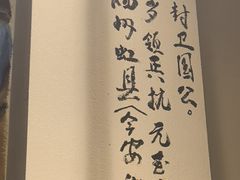 封卫国公。
多镇兵抗元至
泗州虹县(今安